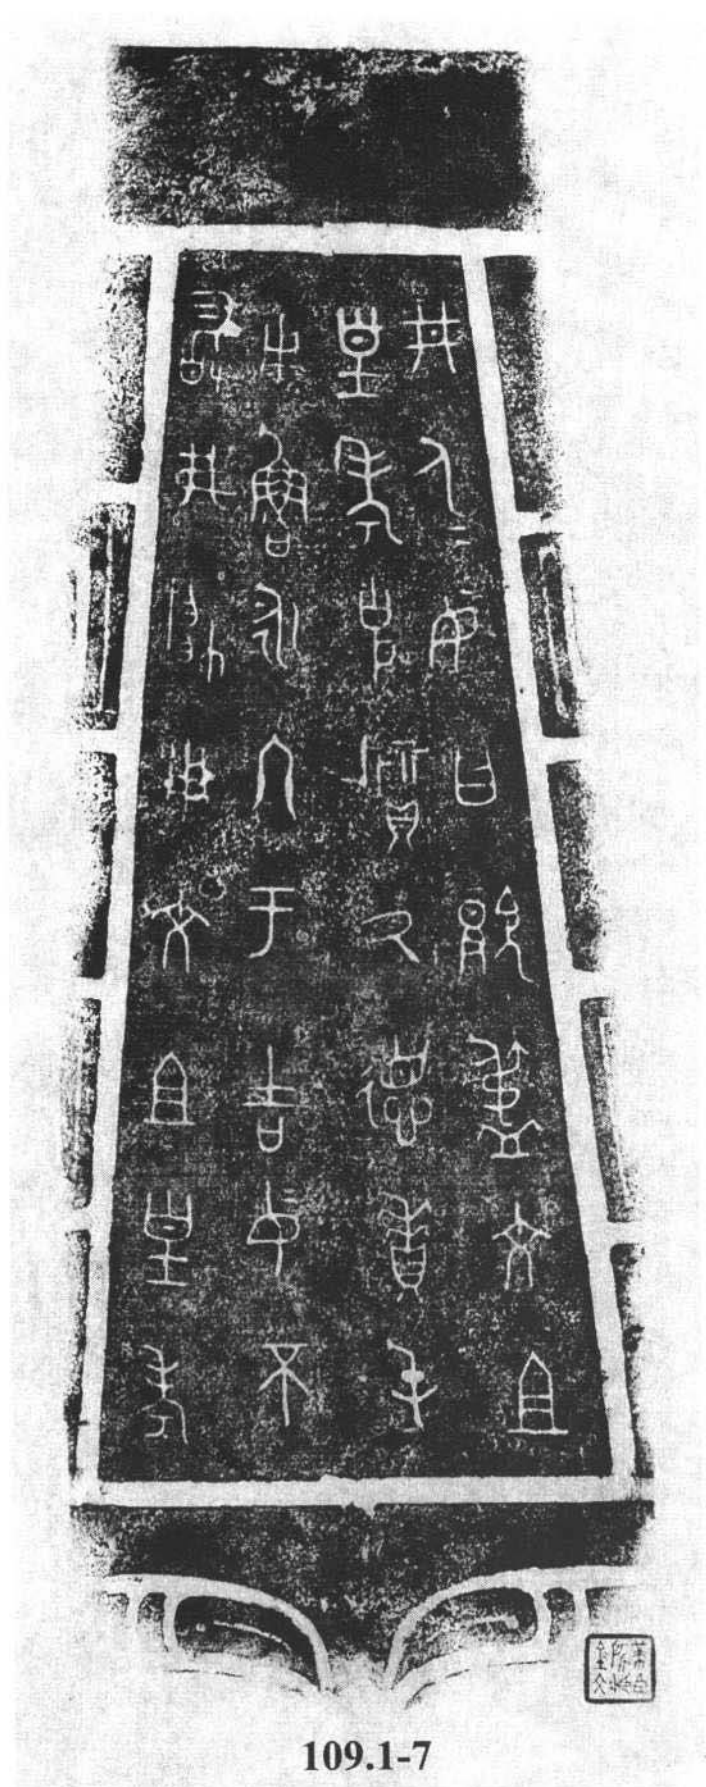 井人＝妄曰覭盄文且
皇考克質氒德得屯
用魯永冬于吉妄不
敢弗帥用文且皇考
109.1-7